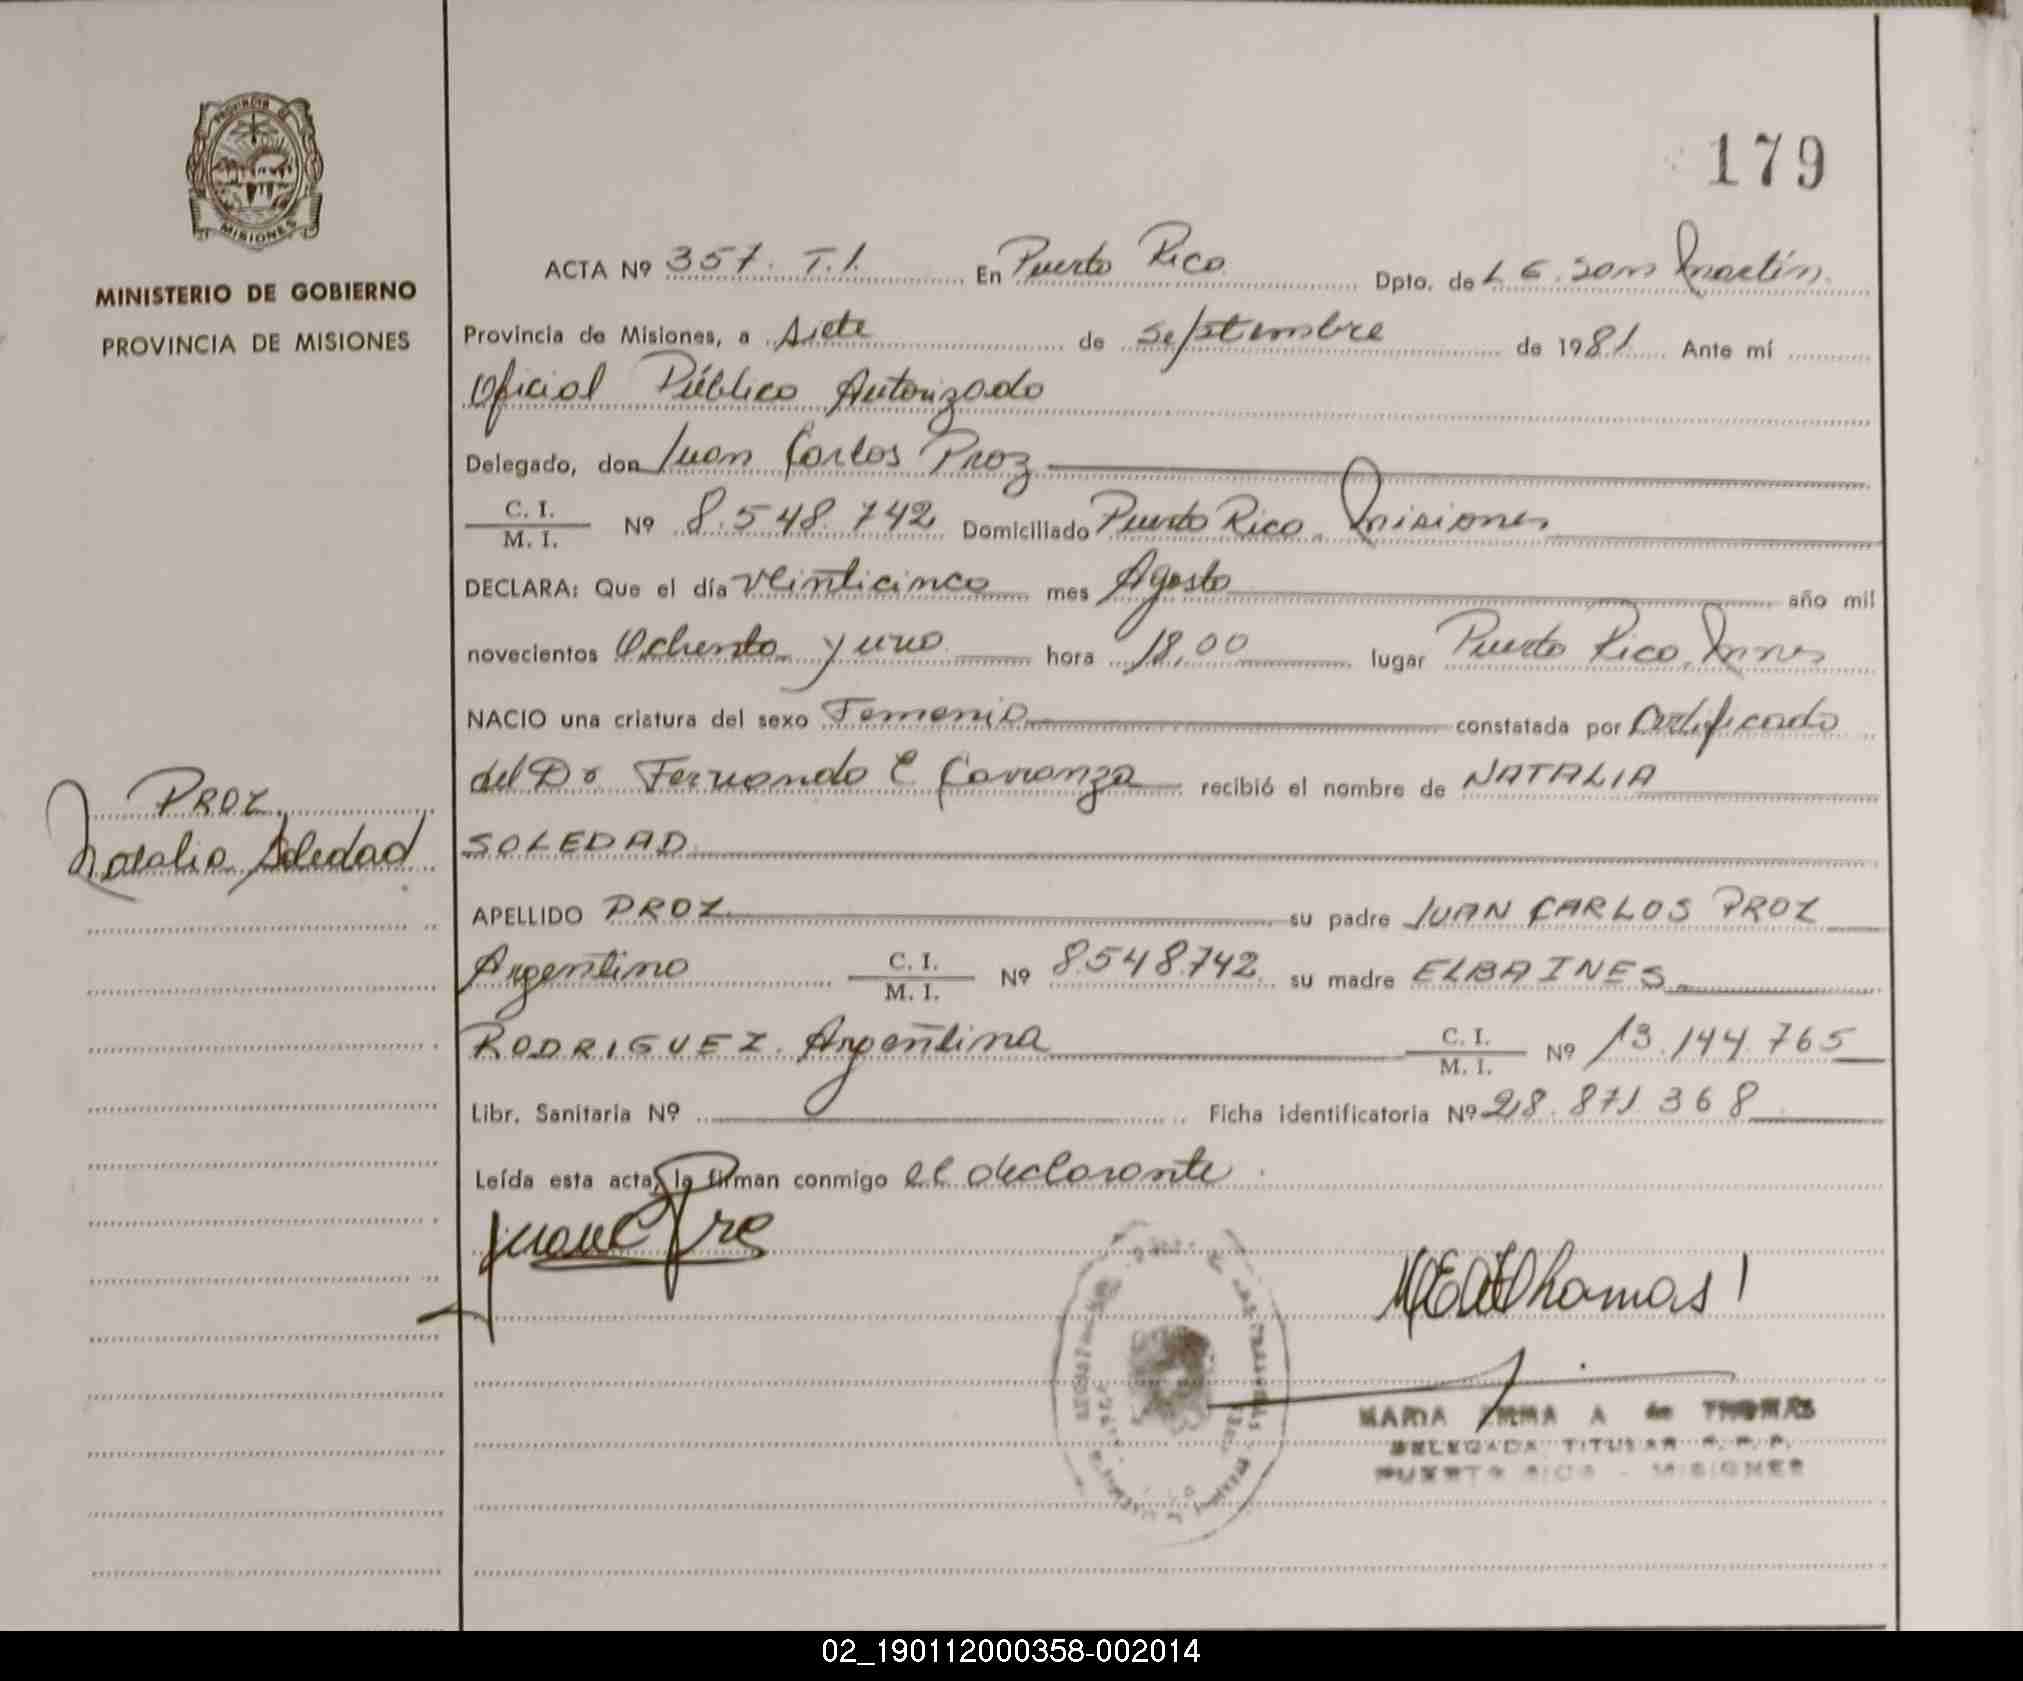 179
PROVINCIA DE
MISIONES
MINISTERIO DE GOBIERNO
PROVINCIA DE MISIONES
PROZ
Natalia Soledad
ACTA Nº 357. T.I. En Puerto Rico Dpto. de L G. San Martín
Provincia de Misiones, a Siete de Septiembre de 1981 Ante mí
Oficial Público Autorizado
Delegado, don Juan Carlos Proz
C. I.
M. I. Nº 8.548.742 Domiciliado Puerto Rico. Misiones
DECLARA: Que el día Veinticinco mes Agosto año mil
novecientos Ochenta y uno hora 18,00 lugar Puerto Rico, Mnes
NACIO una criatura del sexo Femenio constatada por Certificado
del Dr Fernando C Carranza recibió el nombre de NATALIA
SOLEDAD
APELLIDO PROZ su padre JUAN CARLOS PROZ
Argentino C. I.
M. I. Nº 8.548.742 su madre ELBA INES
RODRIGUEZ. Argentina C. I.
M. I. Nº 13.144.765
Libr. Sanitaria Nº Ficha identificatoria Nº 28.871.368
Leída esta acta, la firman conmigo el declarante
MARIA EMMA A de THOMAS
DELEGADA TITULAR R. P. P.
PUERTO RICO - MISIONES
02_190112000358-002014